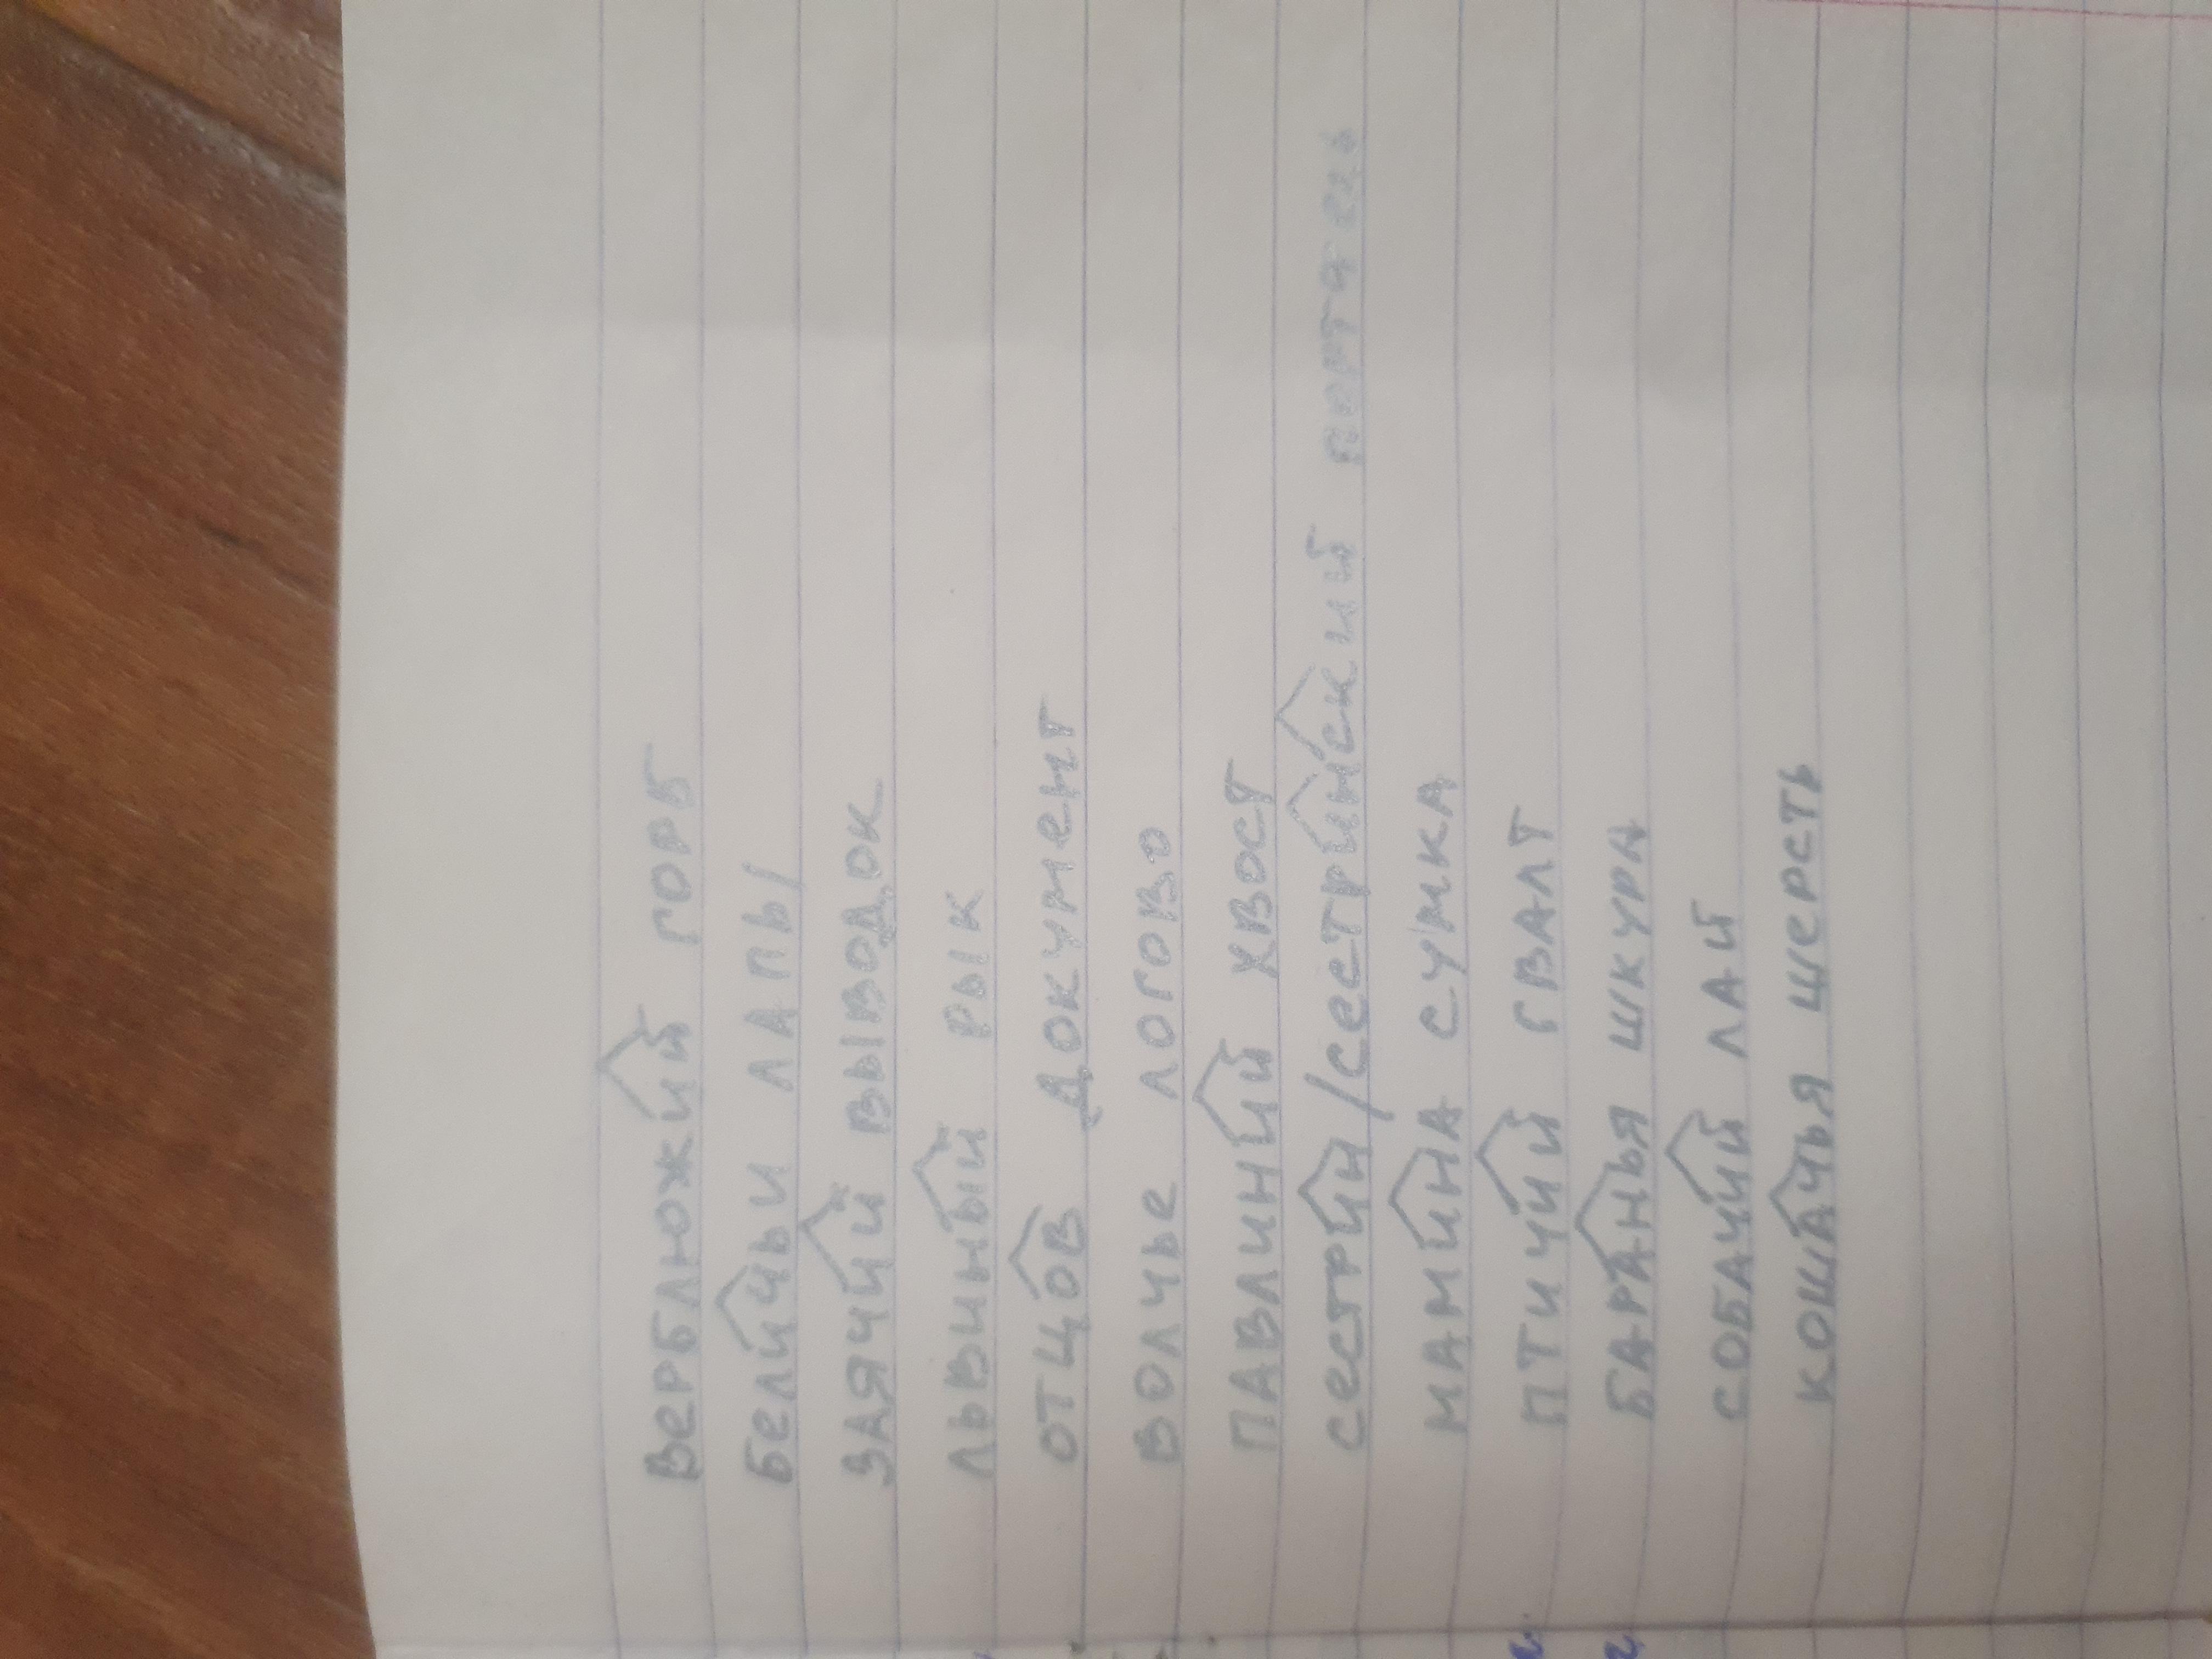 Верблюжий горб
Беличьи лапы
Заячий выводок
Львиный рык
Отцов документ
Волчье логово
Павлиний хвост
Сестрин/сестринский портфель
Мамина сумка
Птичий гвалт
Баранья шкура
Собачий лай
Кошачья шерсть